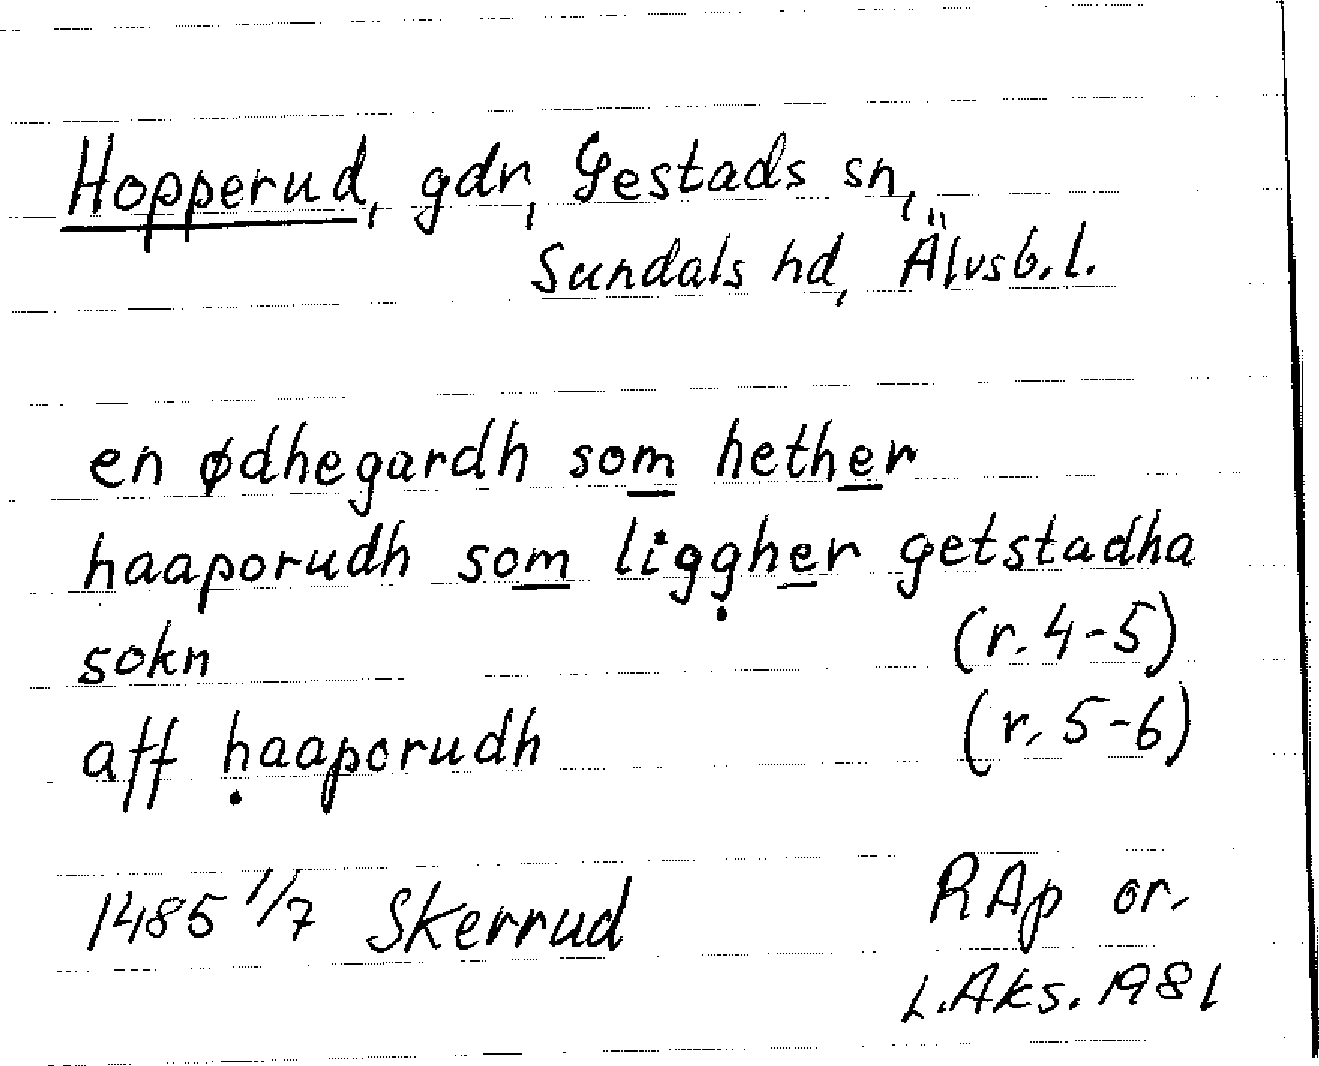 Hopperud, gdr, Gestads sn,
Sundals hd, Älvsb. l.
en ødhegardh som hether
haaporudh som liggher getstadha
sokn (r. 4-5)
aff haaporudh (r. 5-6)
1485 1/7 Skerrud RAp or.
L. Aks. 1981